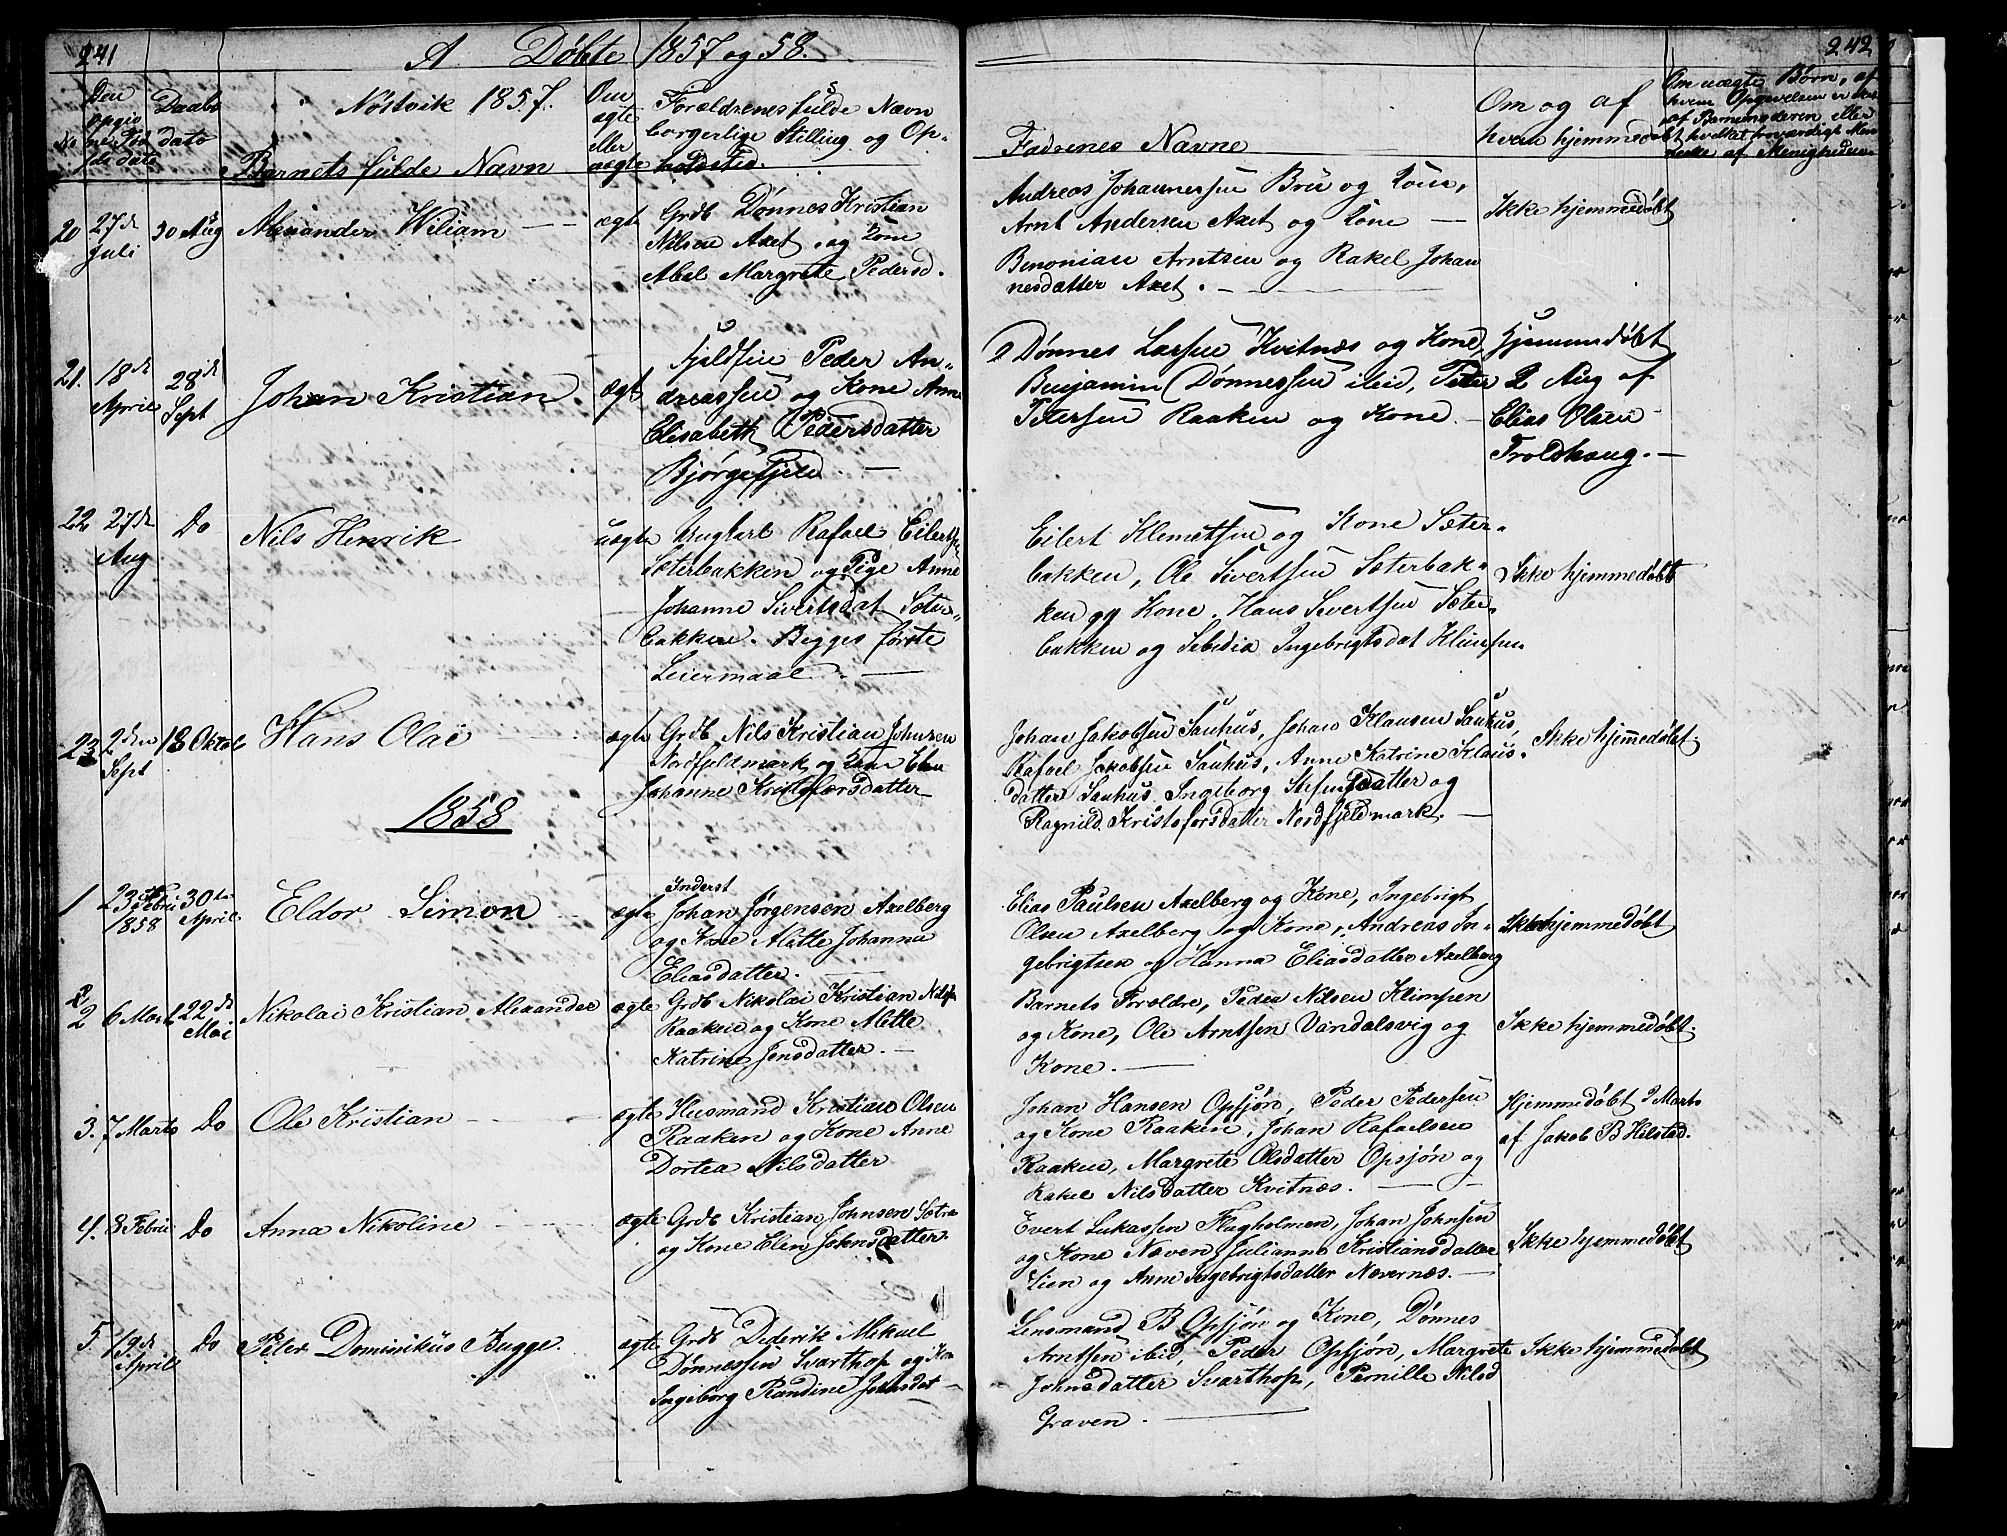 241
A Døbte 1857 og 58.
242
No
Den opgivne Fødselsdato
Daabsdato
Nöstvik 1857.
Barnets fulde Navn
Om ægte eller uægte
Forældrenes fulde Navn
borgerlige Stilling og Op-
holdssted.
Faderenes Navne
Om og af
hvem hjemmedøbt
Om uægte Børn, af
hvem Opgivelsen er
af Barnemoderen eller
hvilket troværdigt Men
af Menigheden.
20
27de Juli
30 Aug
Alexander Wiliam
ægte
Grdb Dønnes Kristian
Nilsen Axet, og Kone
Abel Margrete Pedersd.
Andreas Johannessen Bru og Kone,
Arnt Andersen Axet og Kone
Benoniau Arntsen og Rakel Johan
nesdatter Axet.
Ikke hjemmedøbt
21.
18de April
28de Sept
Johan Kristian
ægte
Fjeldfin Peder An-
dreassen og Kone Anne
Elisabeth Pedersdatter
Bjørgefjeld
Dønnes Larsen Kvitnæs og Kone,
Benjamin Dønnessen ibid, Peter
Petersen Raaken og Kone.
Hjemmedøbt
2 Aug af
Elias Olsen
Troldhaug.
22
27de Aug
Do
Nils Henrik
uægte
Ungkarl Rafael Eilertsen
Sæterbakken og Pige Anne
Johanne Sivertsdat Sæter-
bakken. Begges første
Leiermaal
Eilert Klemetsen og Kone Sæter-
bakken, Ole Sivertsen Sæterbak-
ken og Kone. Hans Sivertsen Sæter
bakken og Sebedia Ingebrigtsdat Klimpen
Ikke hjemmedøbt
23
2den Sept
18 Oktob
Hans Olai
ægte
Grdb Nils Kristian Johnsen
Nordfjeldmark og Kone Elen
Johanne Kristofersdatter
Johan Jakobsen Sauhus, Johan Klausen Sauhus,
Rafael Jakobsen Sauhus, Anne Katrine Klaus-
datter Sauhus Ingeborg Stefensdatter og
Ragnild Kristofersdatter Nordfjeldmark.
Ikke hjemmedøbt.
1858
1
23 Febru 1858
30te April
Eldor Simon
ægte
Inderst
Johan Jørgensen Axelberg
og Kone Alette Johanna
Eliasdatter.
Elias Paulsen Axelberg og Kone, Ingebrigt
Olsen Axelberg og Kone, Andreas In-
gebrigtsen og Hanna Eliasdatter Axelberg
Ikke hjemmedøbt
2
6 Marts
22de Mai
Nikolai Kristian Alexander
ægte
Grdb Nikolai Kristian Nilsen
Raaken og Kone Alette
Katrine Jensdatter.
Barnets Forældre, Peder Nilsen Klimpen
og Kone, Ole Arntsen Vandalsvig og
Kone.
Ikke hjemmedøbt.
3.
7 Marts
Do
Ole Kristian
ægte
Husmand Kristian Olsen
Raaken og Kone Anne
Dortea Nilsdatter
Johan Hansen Opsjön, Peder Pedersen
og Kone Raaken, Johan Rafaelsen
Raaken, Margrete Olsdatter Opsjön og
Rakel Nilsdatter Kvitnæs.
Hjemmedöbt 9 Marts
af Jakob B Hilstad.
4.
8 Febru
Do
Anna Nikoline
ægte
Grdb Kristian Johnsen Sætra
og Kone Elen Johnsdatter.
Evert Lukassen Flagholmen, Johan Johnsen
og Kone Næven, Julianna Kristiansdatter
Lien og Anne Ingebrigtsdatter Nævernæs.
Ikke hjemmedøbt
5
19de April
Do
Peter Dominikus Bugge.
ægte
Grdb Diderik Mekael
Dønnessen Svarthop og Kone
Ingeborg Randine Johnsdat
Lensmand B Opsjön og Kone, Dönnes
Arntsen ibid, Peder Opsjön, Margrete
Johnsdatter Svarthop, Pernille Nilsd
Graven.
Ikke hjemmedøbt